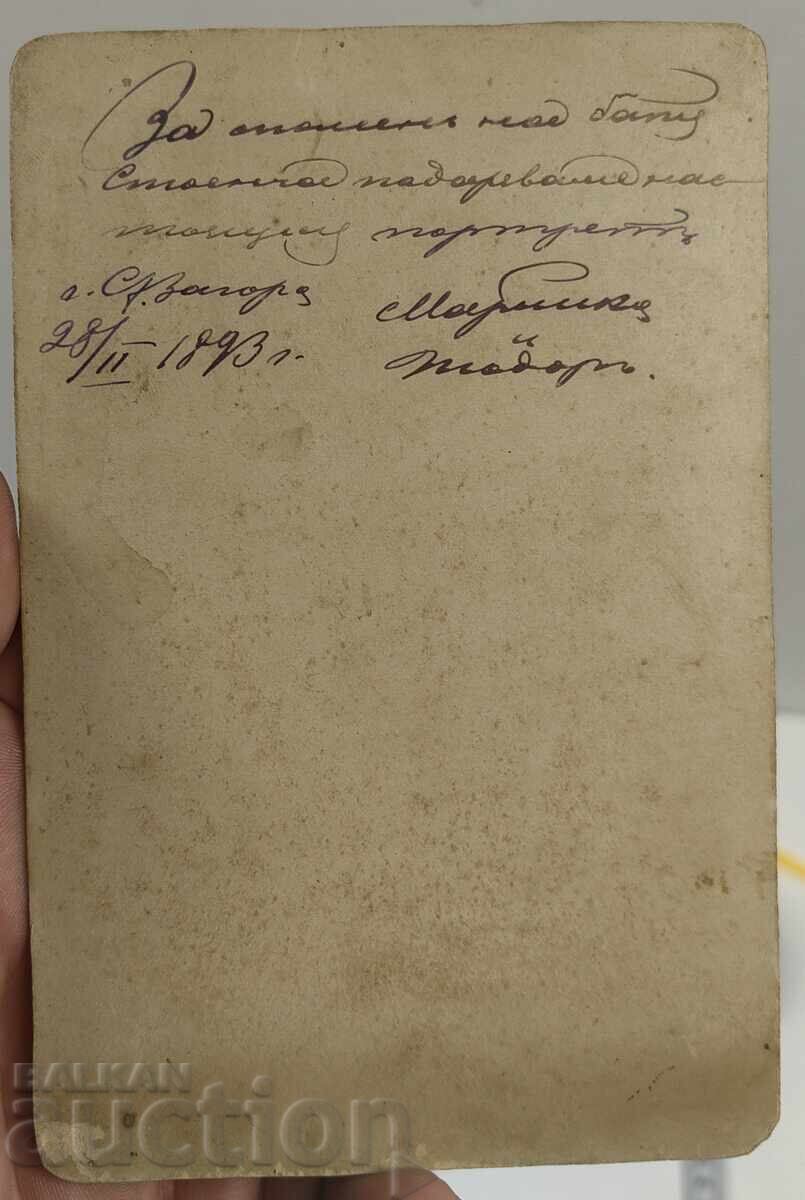 За споменъ на батя
Стоенча подаряваме нас-
тоящия портретъ
г. Ст. Загора Марийка
28/II 1893 г. и
Тодоръ.
BALKAN
auction